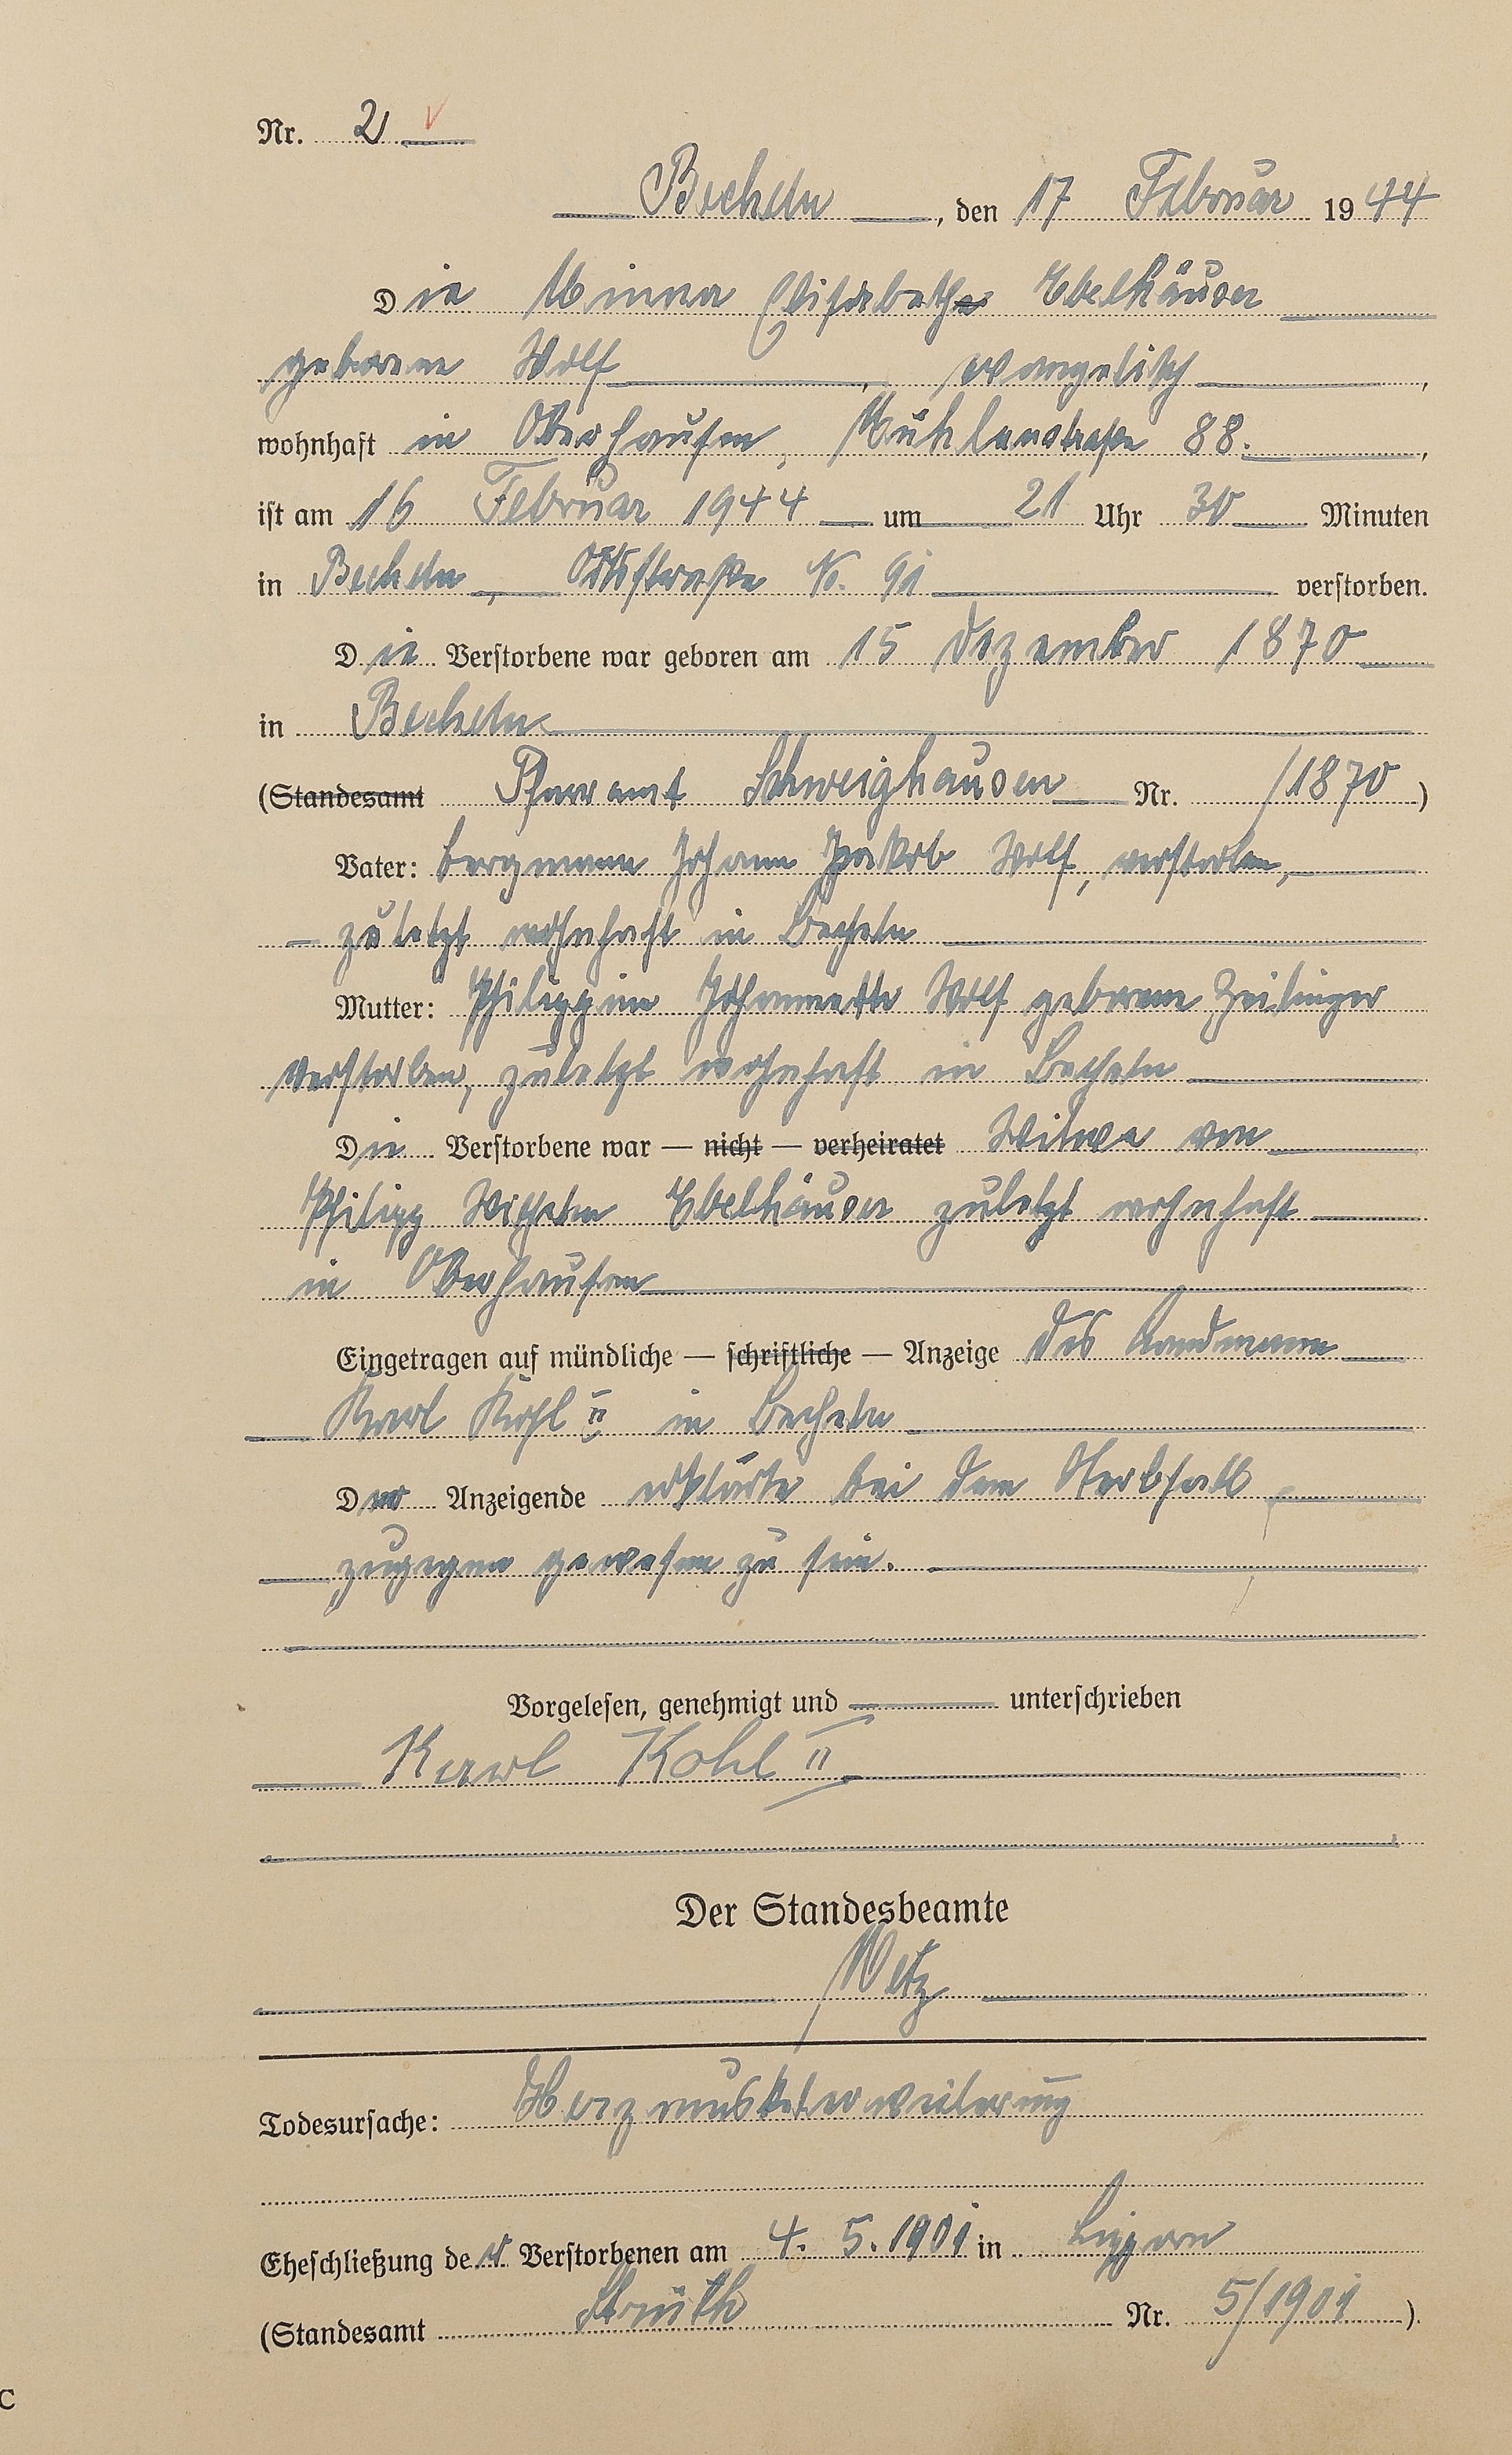 Nr. 2
Becheln, den 17 Februar 1944
Die Minna Elisabeth Ebelhäuser
geborene Wolf, evangelisch,
wohnhaft in Oberhausen, Mühlenstraße 88.,
ist am 16 Februar 1944 um 21 Uhr 30 Minuten
in Becheln, Ortsstraße No. 91 verstorben.
Die Verstorbene war geboren am 15 Dezember 1870
in Becheln
(Standesamt Pfarramt Schweighausen Nr. /1870)
Vater: Bergmann Johann Jakob Wolf, verstorben,
zuletzt wohnhaft in Becheln
Mutter: Philippine Johannette Wolf geborene Zeilinger
verstorben, zuletzt wohnhaft in Becheln
Die Verstorbene war — nicht — verheiratet Witwe von
Philipp Wilhelm Ebelhäuser zuletzt wohnhaft
in Oberhausen
Eingetragen auf mündliche — schriftliche — Anzeige des Landmann
Karl Kohl II in Becheln
Der Anzeigende erklärte bei dem Sterbfall
zugegen gewesen zu sein.
Vorgelesen, genehmigt und unterschrieben
Karl Kohl II
Der Standesbeamte
Metz
Todesursache: Herzmuskelerweiterung
Eheschließung der Verstorbenen am 4. 5. 1901 in Lipporn
(Standesamt Strüth Nr. 5/1901).
C